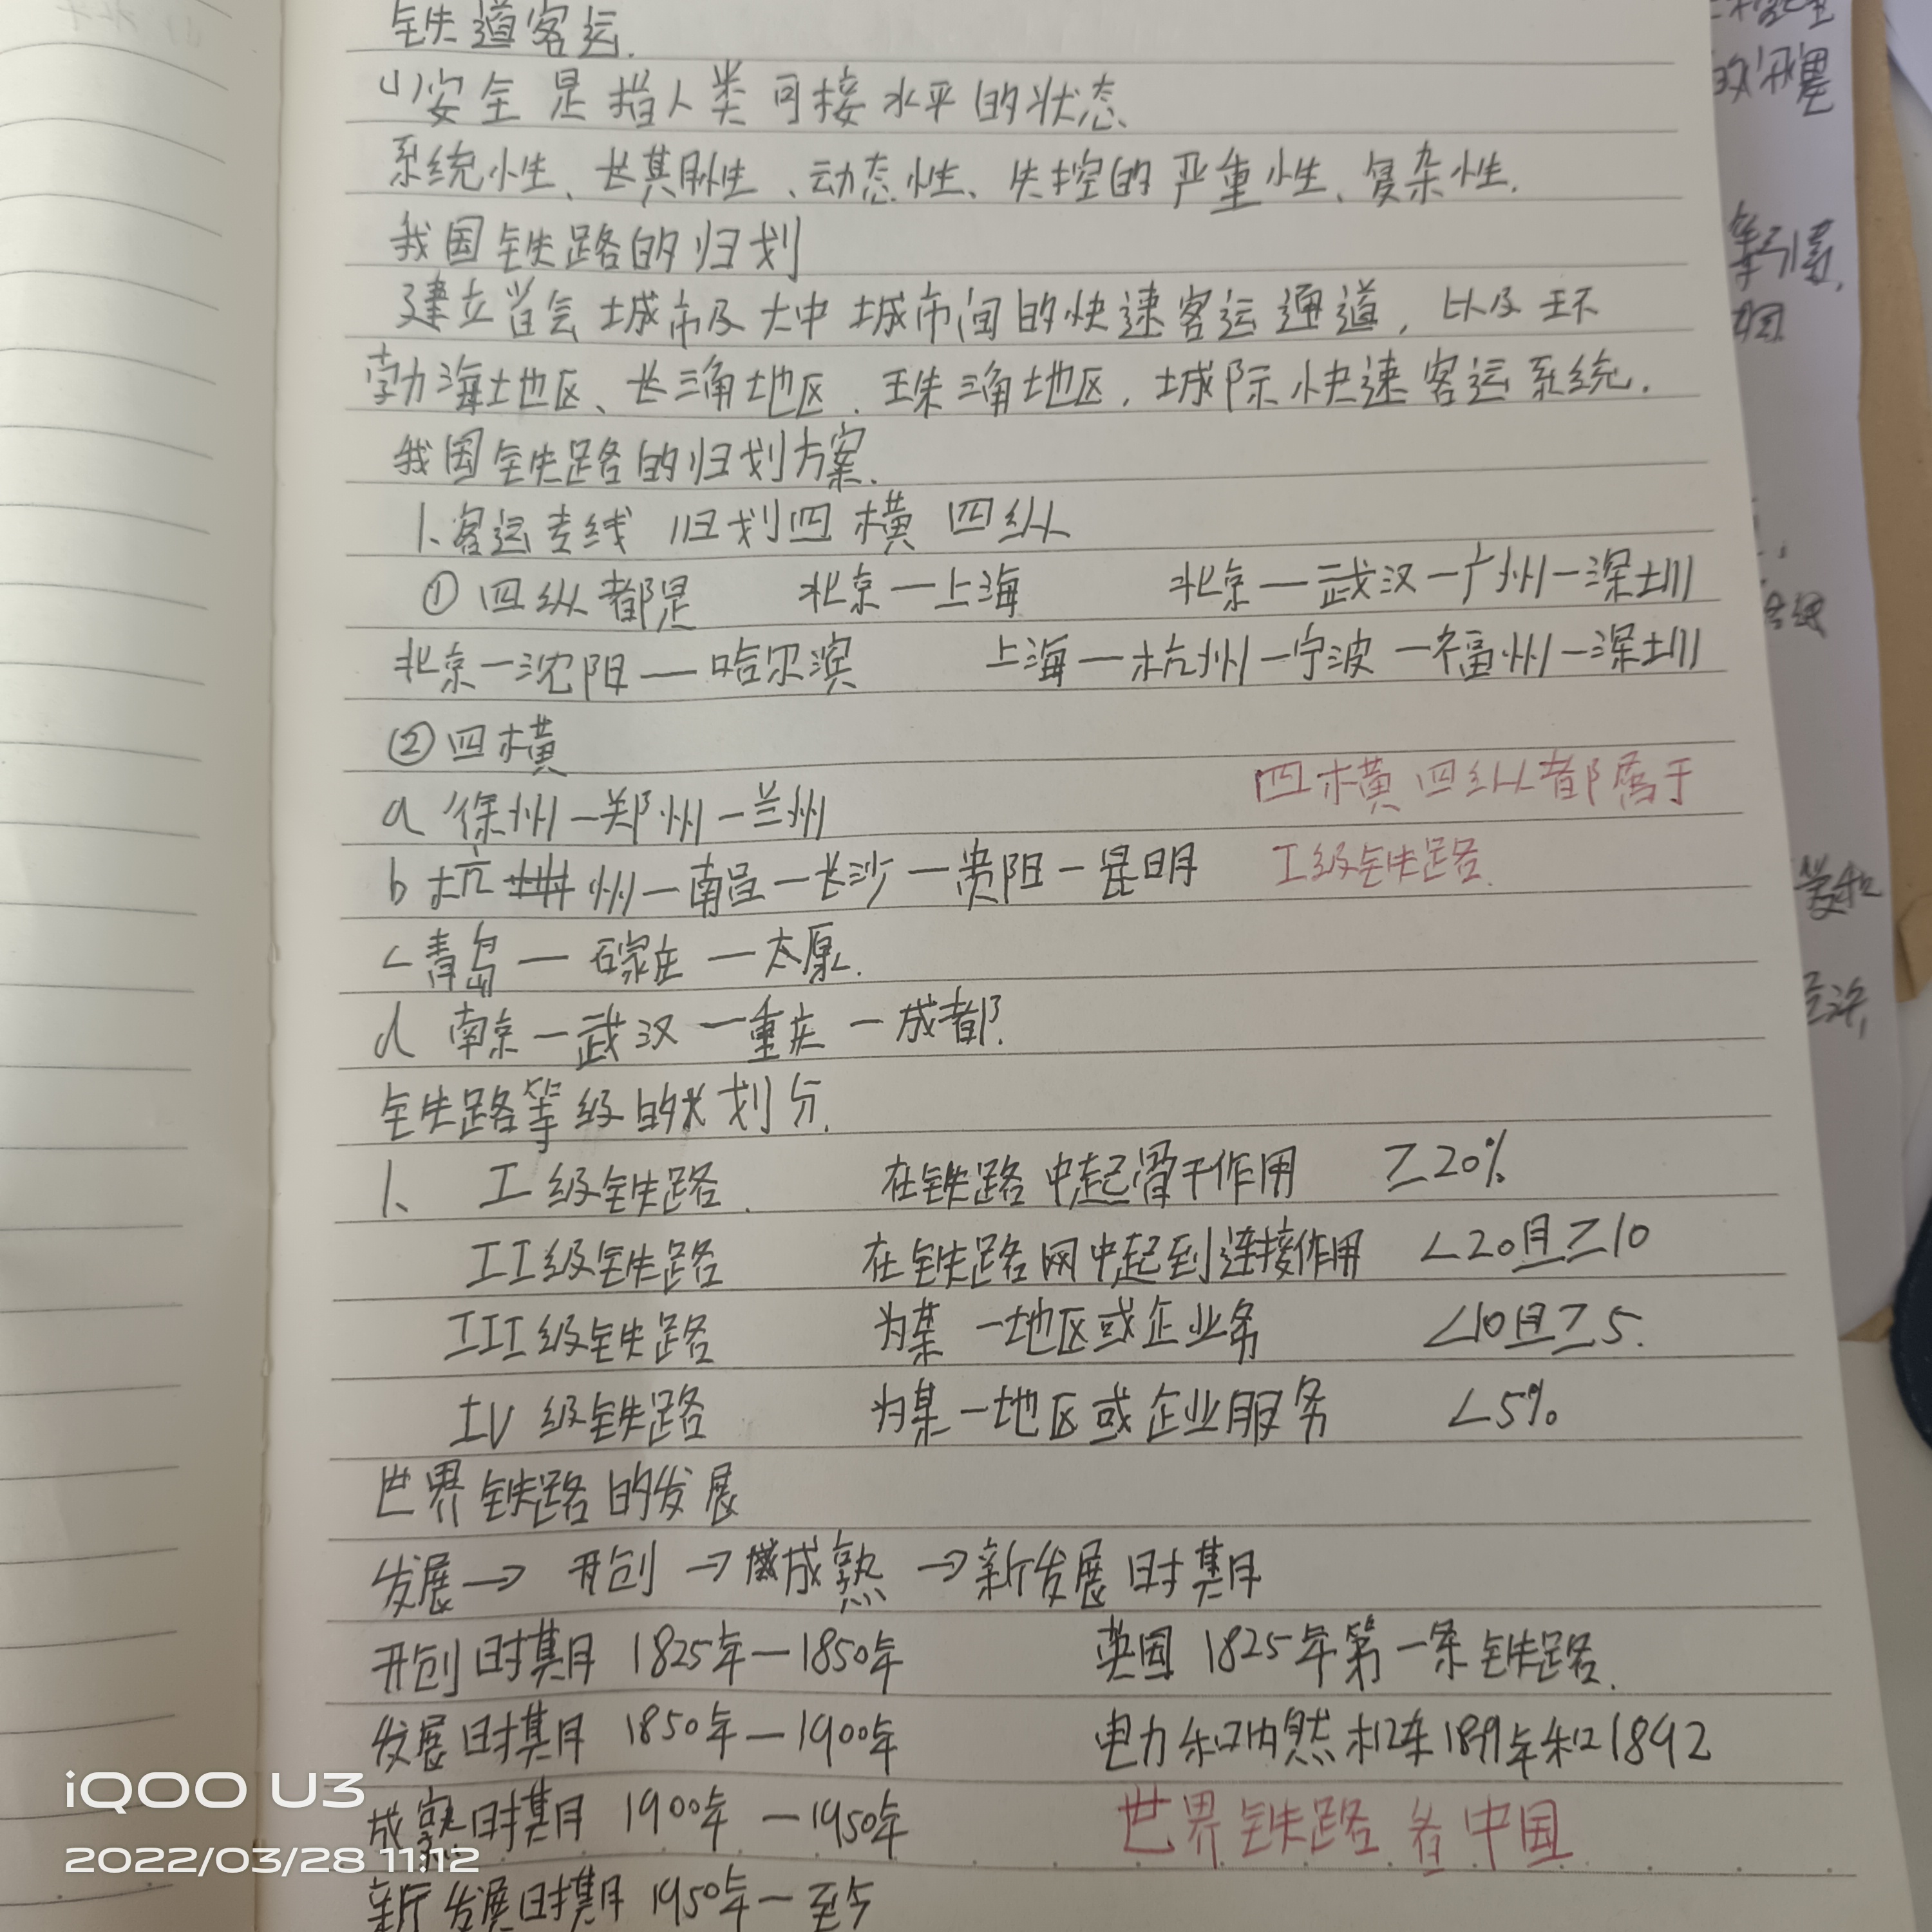 铁道客运.
(1)安全是指人类可接水平的状态
系统性、长期性、动态性、失控的严重性、复杂性.
我国铁路的归划
建立省会城市及大中城市间的快速客运通道, 以及环
勃海地区、长三角地区.珠三角地区,城际快速客运系统.
我国铁路的归划方案.
1、客运专线 归划四横四纵
①四纵都是 北京—上海 北京—武汉—广州—深圳
北京—沈阳—哈尔滨 上海—杭州—宁波—福州—深圳
②四横
a 徐州—郑州—兰州
四横四纵都属于
b 杭州—南昌—长沙—贵阳—昆明
I级铁路.
c 青岛—石家庄—太原.
d 南京—武汉—重庆—成都.
铁路等级的划分.
1、 I级铁路. 在铁路中起骨干作用 ≥20%
II级铁路 在铁路网中起到连接作用 <20且≥10
III级铁路 为某一地区或企业务 <10且≥5.
IV级铁路 为某一地区或企业服务 <5%
世界铁路的发展
发展→开创→成熟→新发展时期
开创时期 1825年—1850年 英国1825年第一条铁路.
发展时期 1850年—1900年 电力和内然机车1891年和1892
成熟时期 1900年—1950年 世界铁路看中国
新发展时期 1950年—至今
iQOO U3
2022/03/28 11:12